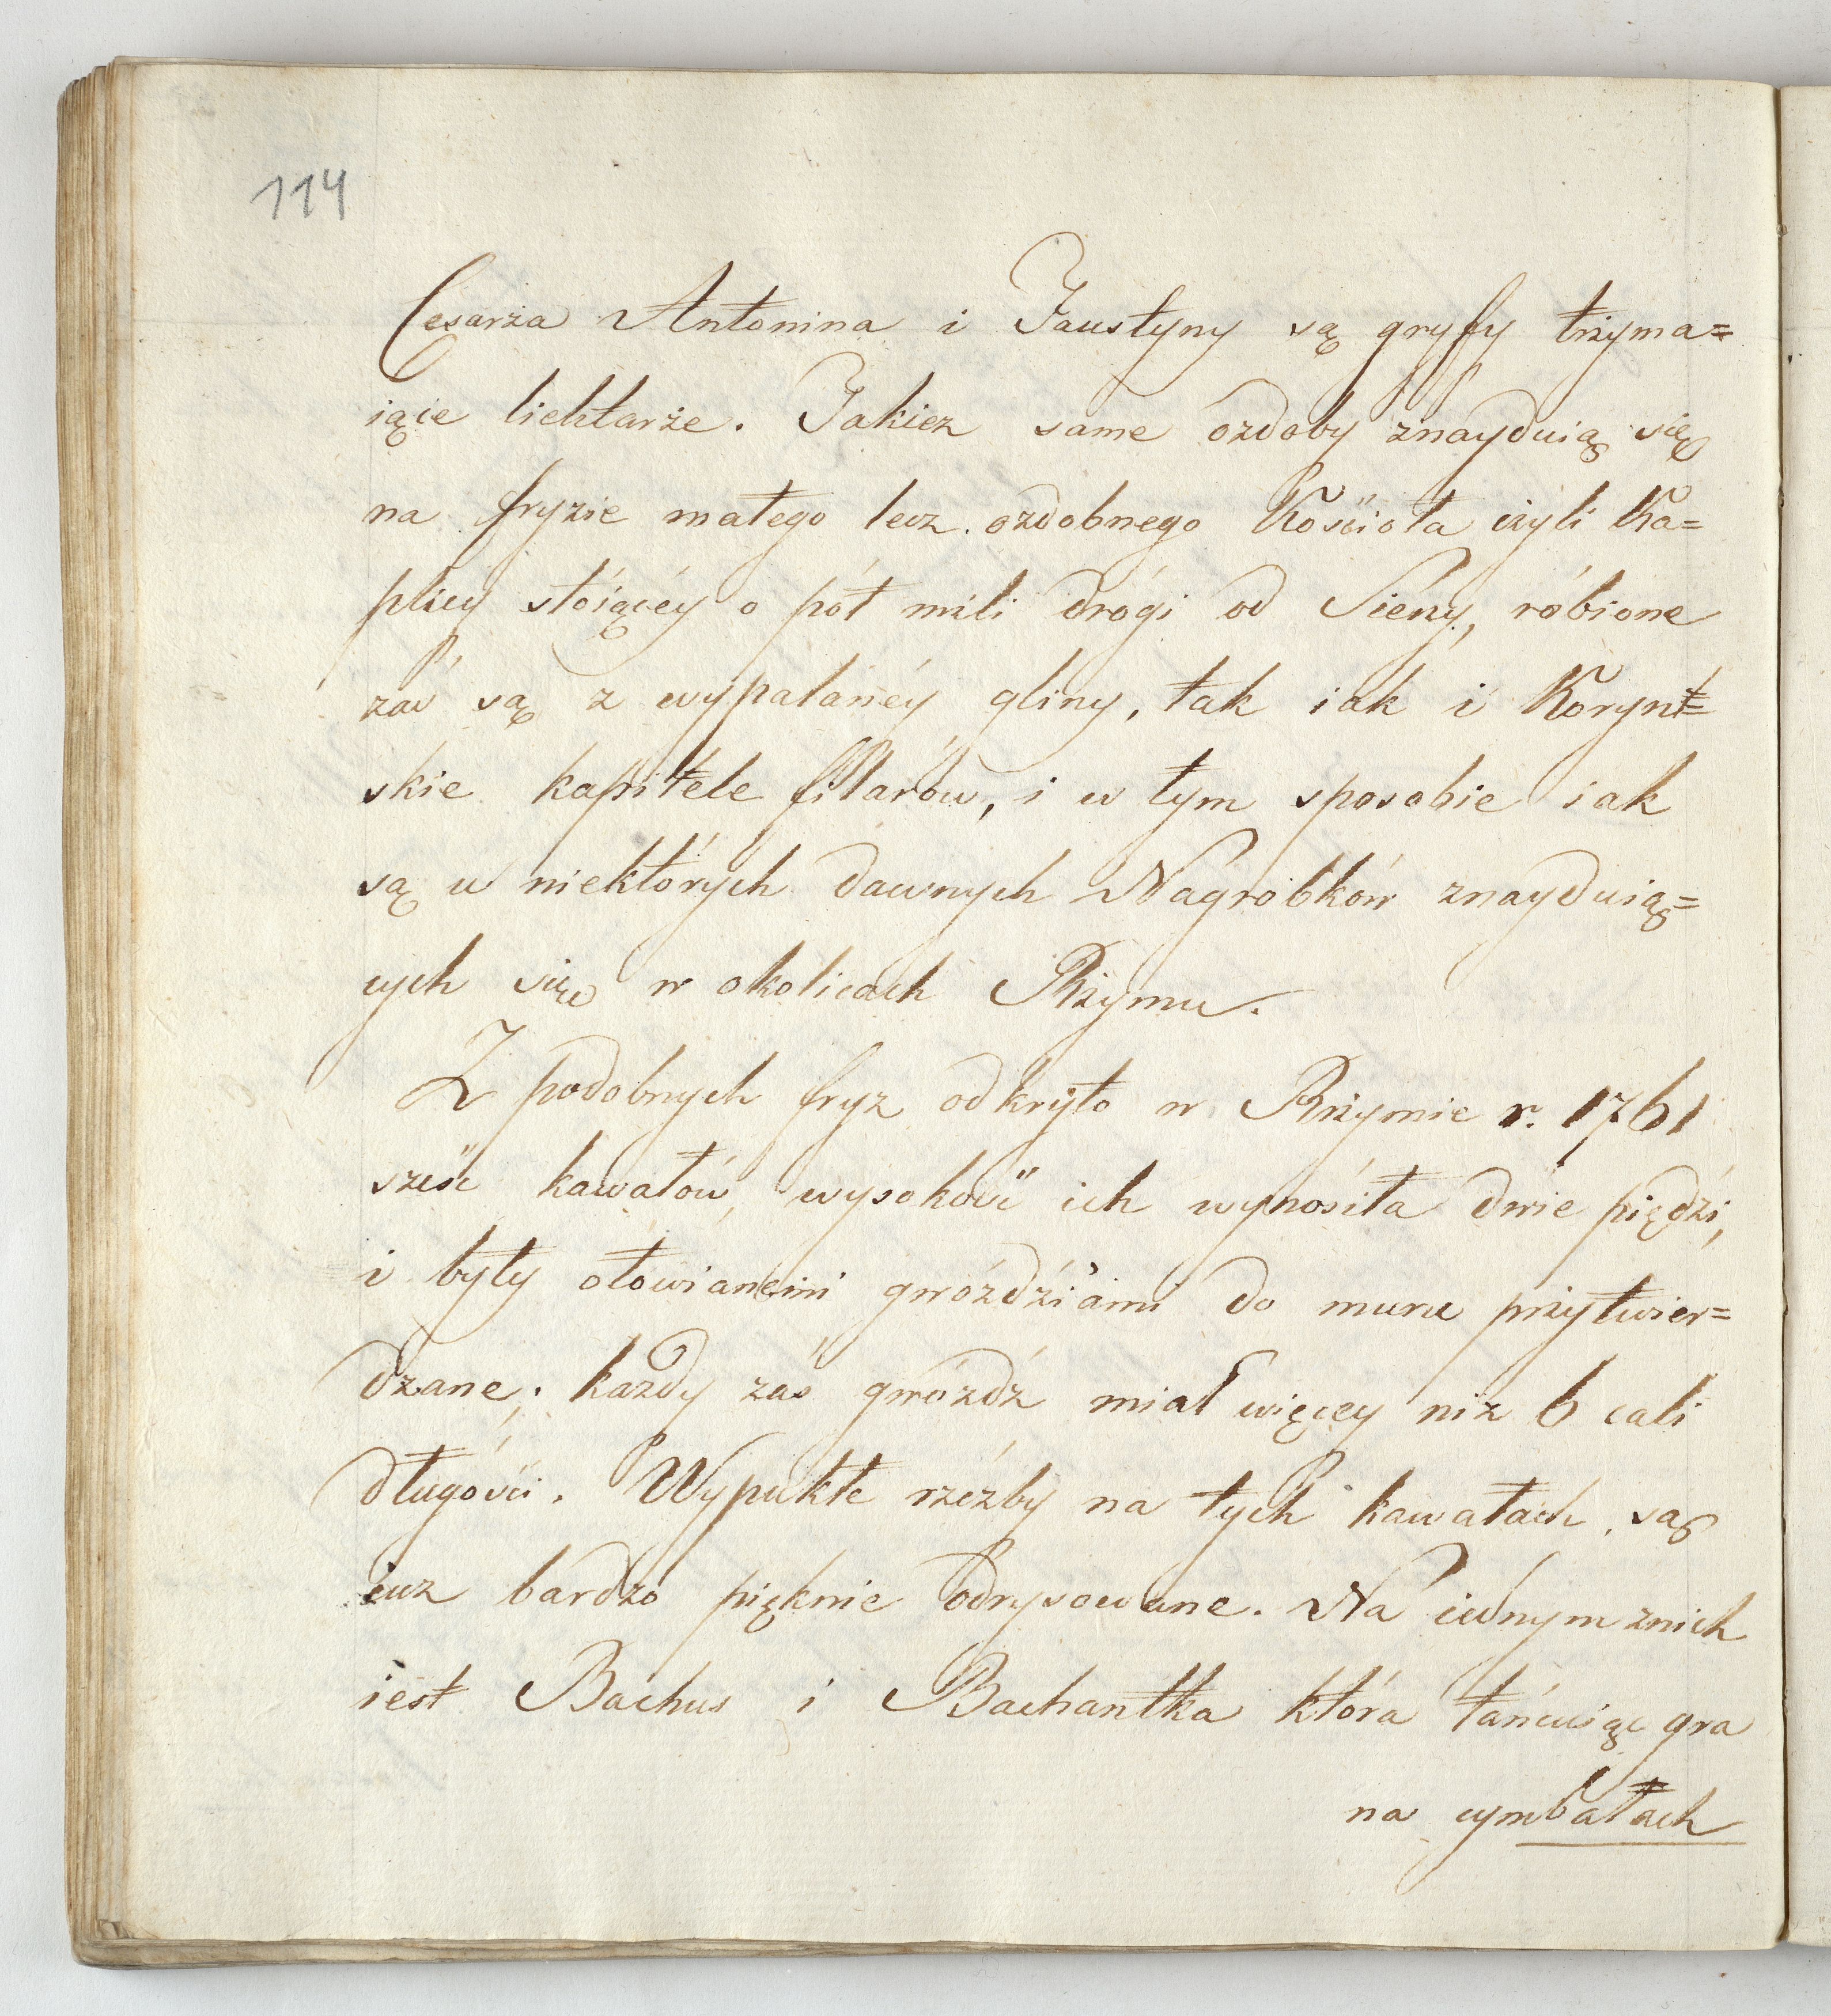 114
Cesarza Antonina i Faustyny są gryfy trzyma=
iące lichtarze. Takież same ozdoby znayduią się
na fryzie małego lecz ozdobnego Kościoła czyli Ka=
plicy stóiącéy o pół mili drógi od Siény, róbione
zaś są z wypalanéy gliny, tak iak i Korynt=
skie kapitele filarów, i w tym sposobie iak
są u niektórych dawnych Nagrobków znayduią=
cych się w okolicach Rzymu.
Z podobnych fryz odkryto w Rzymie r. 1761
sześć kawałów, wysokość ich wynosiła dwie piędzi,
i były ołowianemi gwóźdźiami do muru przytwier=
dzane; każdy zaś gwóźdź miał więcey niż 6 cali
długości. Wypukłe rzeźby na tych kawałach, są
iuż bardzo pięknie odrysowane. Na iednym znich
iest Bachus i Bachantka która tańcuiąc gra
na cymbałach